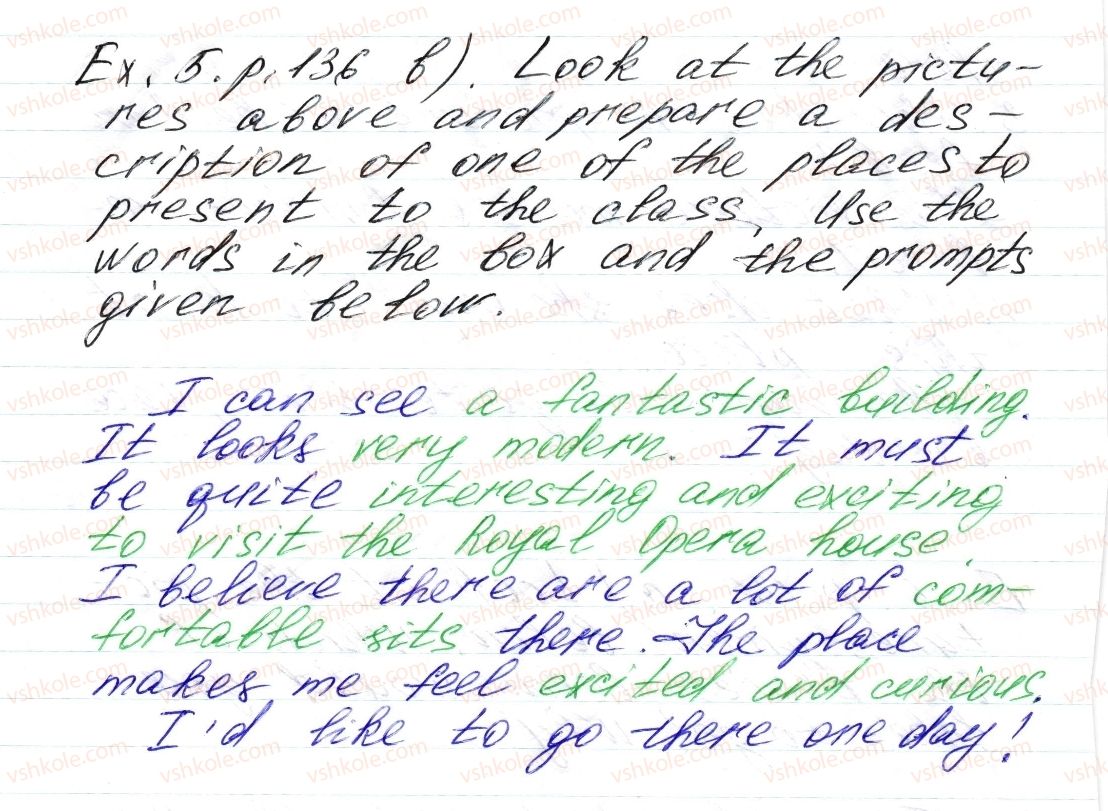 Ex. 5. p. 136 b). Look at the pictu-
res above and prepare a des-
cription of one of the places to
present to the class. Use the
words in the box and the prompts
given below.
I can see a fantastic building.
It looks very modern. It must
be quite interesting and exciting
to visit the Royal Opera house.
I believe there are a lot of com-
fortable sits there. The place
makes me feel excited and curious.
I'd like to go there one day!